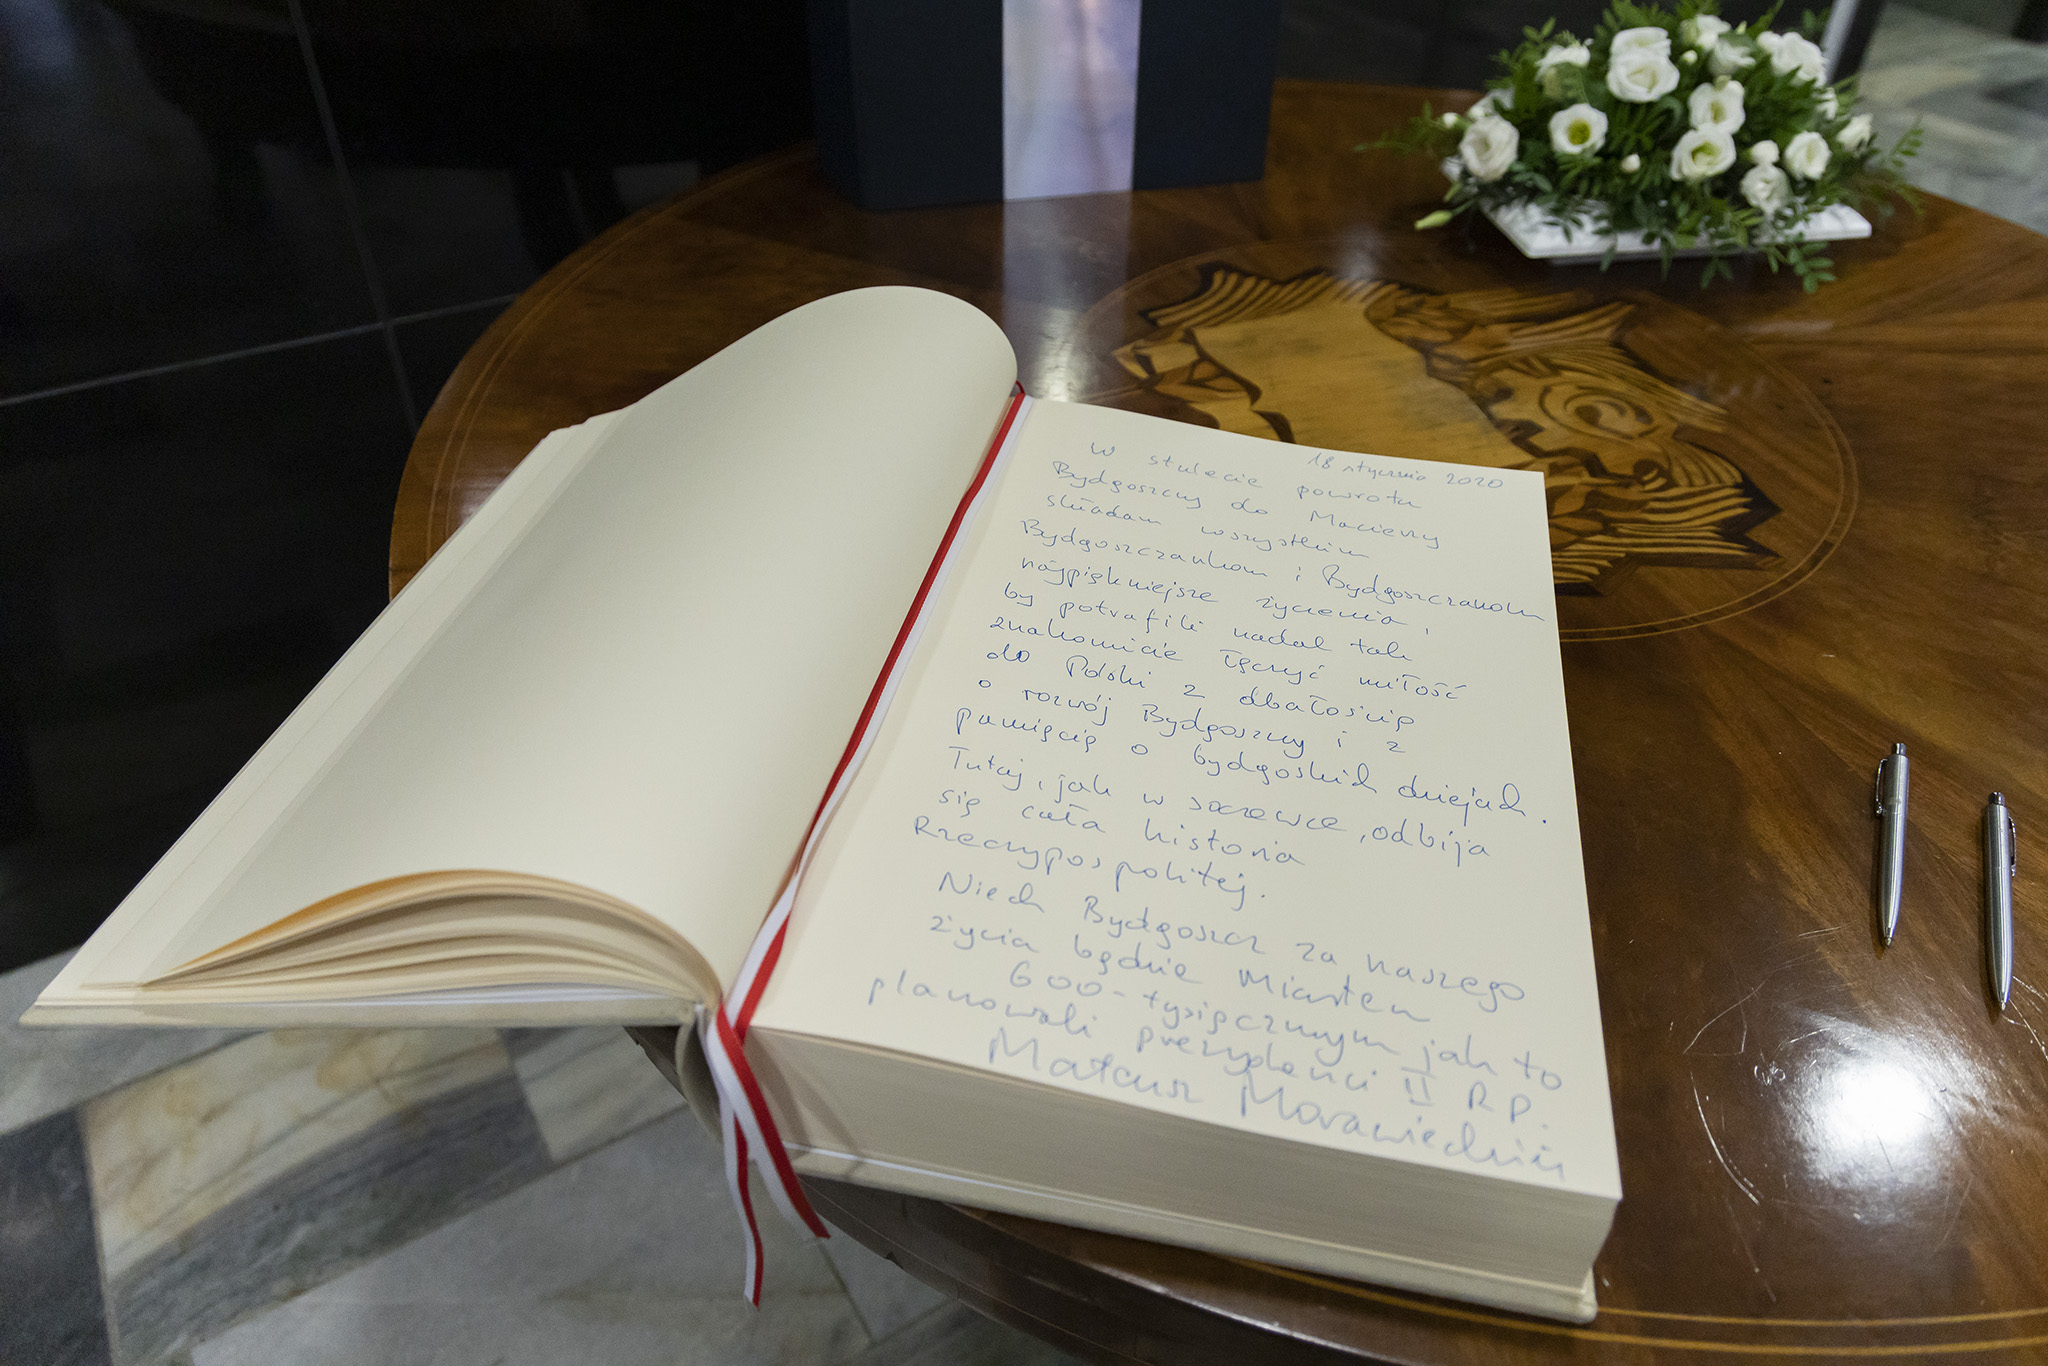 18 stycznia 2020
W stulecie powrotu
Bydgoszczy do Macierzy
składam wszystkim
Bydgoszczankom i Bydgoszczanom
najpiękniejsze życzenia,
by potrafili nadal tak
znakomicie łączyć miłość
do Polski z dbałością
o rozwój Bydgoszczy i z
pamięcią o bydgoskich dziejach.
Tutaj, jak w soczewce, odbija
się cała historia
Rzeczypospolitej.
Niech Bydgoszcz za naszego
życia będzie miastem
600-tysięcznym jak to
planowali prezydenci II RP.
Mateusz Morawiecki